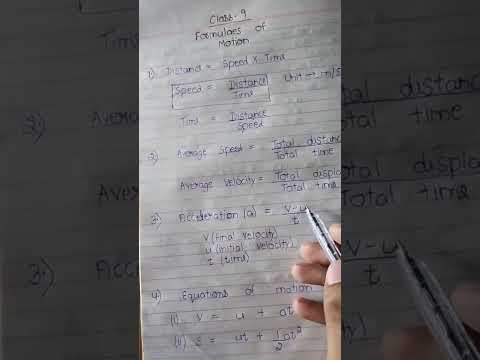 Class - 9
Formulaes of
Motion
1) Distance = Speed × Time
Speed = Distance / Time Unit → m/s
Time = Distance / Speed
2) Average Speed = Total distance / Total time
Average Velocity = Total displa / Total time
3) Acceleration (a) = v-u / t
v (final velocity)
u (initial velocity)
t (time)
4) Equations of motion
(i) v = u + at
(ii) s = ut + 1/2 at²